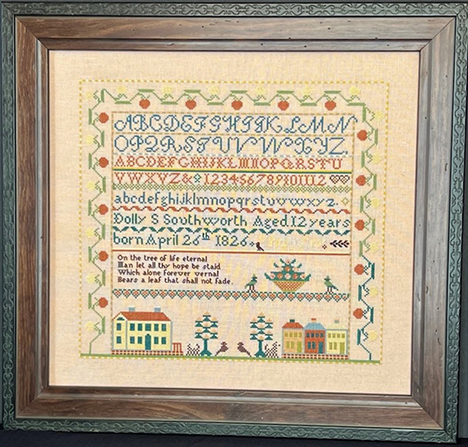 ABCDEFGHIJKLMN
OPQRSTUVWXYZ.
ABCDEFGHIJKLMNOPQRSTU
VWXYZ& 123456789101112
abcdefghijklmnopqrstuvwxyz.
Dolly S Southworth Aged 12 years
born April 26th 1826
On the tree of life eternal
Man let all thy hope be staid
Which alone forever vernal
Bears a leaf that shall not fade.